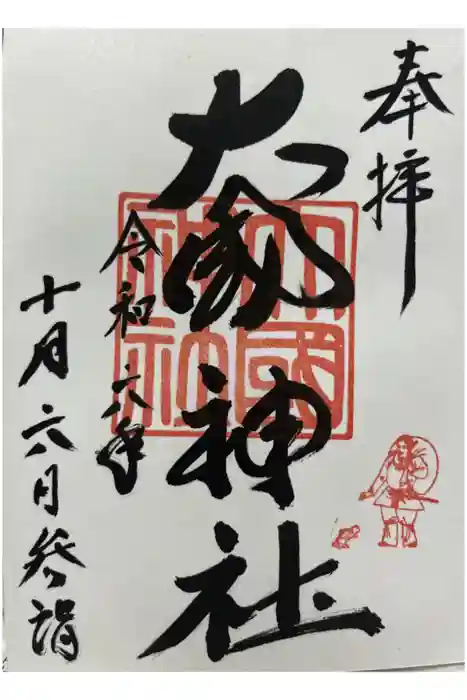 奉拝
大國神社
令和六年
十月六日参詣
大國
神社